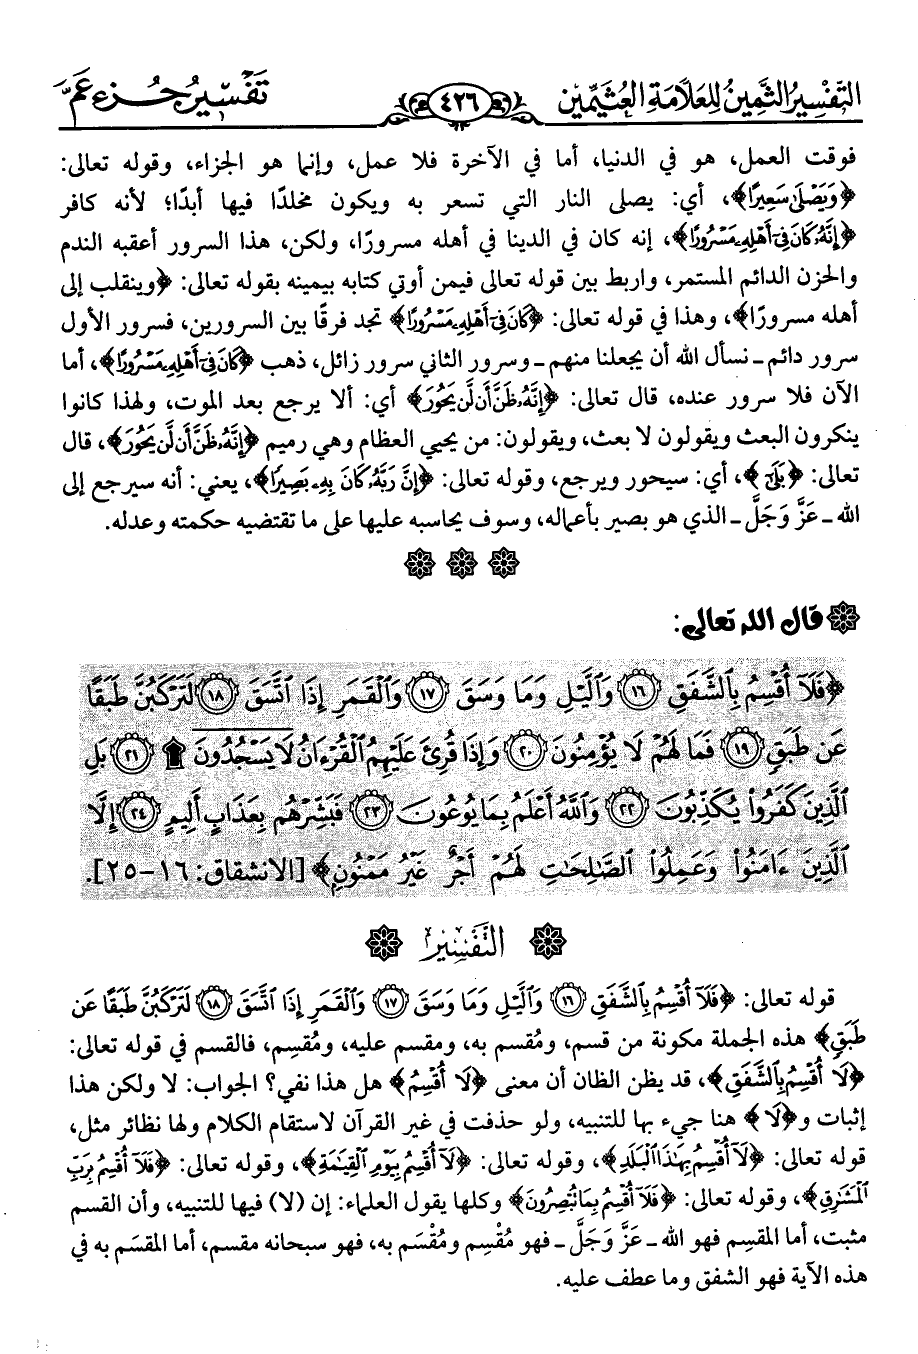 التفسير الثمين للعلامة العثيمين ٤٢٦ تفسير جزء عم
فوقت العمل، هو في الدنيا، أما في الآخرة فلا عمل، وإنما هو الجزاء، وقوله تعالى:
﴿وَيَصْلَىٰ سَعِيرًا﴾، أي: يصلى النار التي تسعر به ويكون مخلدًا فيها أبدًا؛ لأنه كافر
﴿إِنَّهُۥ كَانَ فِىٓ أَهْلِهِۦ مَسْرُورًا﴾، إنه كان في الدينا في أهله مسرورًا، ولكن، هذا السرور أعقبه الندم
والحزن الدائم المستمر، واربط بين قوله تعالى فيمن أوتي كتابه بيمينه بقوله تعالى: ﴿وينقلب إلى
أهله مسرورًا﴾، وهذا في قوله تعالى: ﴿كَانَ فِىٓ أَهْلِهِۦ مَسْرُورًا﴾ تجد فرقًا بين السرورين، فسرور الأول
سرور دائم ـ نسأل الله أن يجعلنا منهم ـ وسرور الثاني سرور زائل، ذهب ﴿كَانَ فِىٓ أَهْلِهِۦ مَسْرُورًا﴾، أما
الآن فلا سرور عنده، قال تعالى: ﴿إِنَّهُۥ ظَنَّ أَن لَّن يَحُورَ﴾ أي: ألا يرجع بعد الموت، ولهذا كانوا
ينكرون البعث ويقولون لا بعث، ويقولون: من يحيي العظام وهي رميم ﴿إِنَّهُۥ ظَنَّ أَن لَّن يَحُورَ﴾، قال
تعالى: ﴿بَلَىٰٓ﴾، أي: سيحور ويرجع، وقوله تعالى: ﴿إِنَّ رَبَّهُۥ كَانَ بِهِۦ بَصِيرًا﴾، يعني: أنه سيرجع إلى
الله ـ عَزَّ وَجَلَّ ـ الذي هو بصير بأعماله، وسوف يحاسبه عليها على ما تقتضيه حكمته وعدله.
قال الله تعالى:
﴿فَلَآ أُقْسِمُ بِٱلشَّفَقِ ١٦ وَٱلَّيْلِ وَمَا وَسَقَ ١٧ وَٱلْقَمَرِ إِذَا ٱتَّسَقَ ١٨ لَتَرْكَبُنَّ طَبَقًا
عَن طَبَقٍ ١٩ فَمَا لَهُمْ لَا يُؤْمِنُونَ ٢٠ وَإِذَا قُرِئَ عَلَيْهِمُ ٱلْقُرْءَانُ لَا يَسْجُدُونَ ۩ ٢١ بَلِ
ٱلَّذِينَ كَفَرُوا۟ يُكَذِّبُونَ ٢٢ وَٱللَّهُ أَعْلَمُ بِمَا يُوعُونَ ٢٣ فَبَشِّرْهُم بِعَذَابٍ أَلِيمٍ ٢٤ إِلَّا
ٱلَّذِينَ ءَامَنُوا۟ وَعَمِلُوا۟ ٱلصَّٰلِحَٰتِ لَهُمْ أَجْرٌ غَيْرُ مَمْنُونٍ﴾ [الانشقاق: ١٦-٢٥].
التفسير
قوله تعالى: ﴿فَلَآ أُقْسِمُ بِٱلشَّفَقِ ١٦ وَٱلَّيْلِ وَمَا وَسَقَ ١٧ وَٱلْقَمَرِ إِذَا ٱتَّسَقَ ١٨ لَتَرْكَبُنَّ طَبَقًا عَن
طَبَقٍ﴾ هذه الجملة مكونة من قسم، ومُقسم به، ومقسم عليه، ومُقسِم، فالقسم في قوله تعالى:
﴿لَآ أُقْسِمُ بِٱلشَّفَقِ﴾، قد يظن الظان أن معنى ﴿لَآ أُقْسِمُ﴾ هل هذا نفي؟ الجواب: لا ولكن هذا
إثبات و﴿لَآ﴾ هنا جيء بها للتنبيه، ولو حذفت في غير القرآن لاستقام الكلام ولها نظائر مثل،
قوله تعالى: ﴿لَآ أُقْسِمُ بِهَٰذَا ٱلْبَلَدِ﴾، وقوله تعالى: ﴿لَآ أُقْسِمُ بِيَوْمِ ٱلْقِيَٰمَةِ﴾، وقوله تعالى: ﴿فَلَآ أُقْسِمُ بِرَبِّ
ٱلْمَشَٰرِقِ﴾، وقوله تعالى: ﴿فَلَآ أُقْسِمُ بِمَا تُبْصِرُونَ﴾ وكلها يقول العلماء: إن (لا) فيها للتنبيه، وأن القسم
مثبت، أما المقسِم فهو الله ـ عَزَّ وَجَلَّ ـ فهو مُقْسِم ومُقْسَم به، فهو سبحانه مقسم، أما المقسَم به في
هذه الآية فهو الشفق وما عطف عليه.